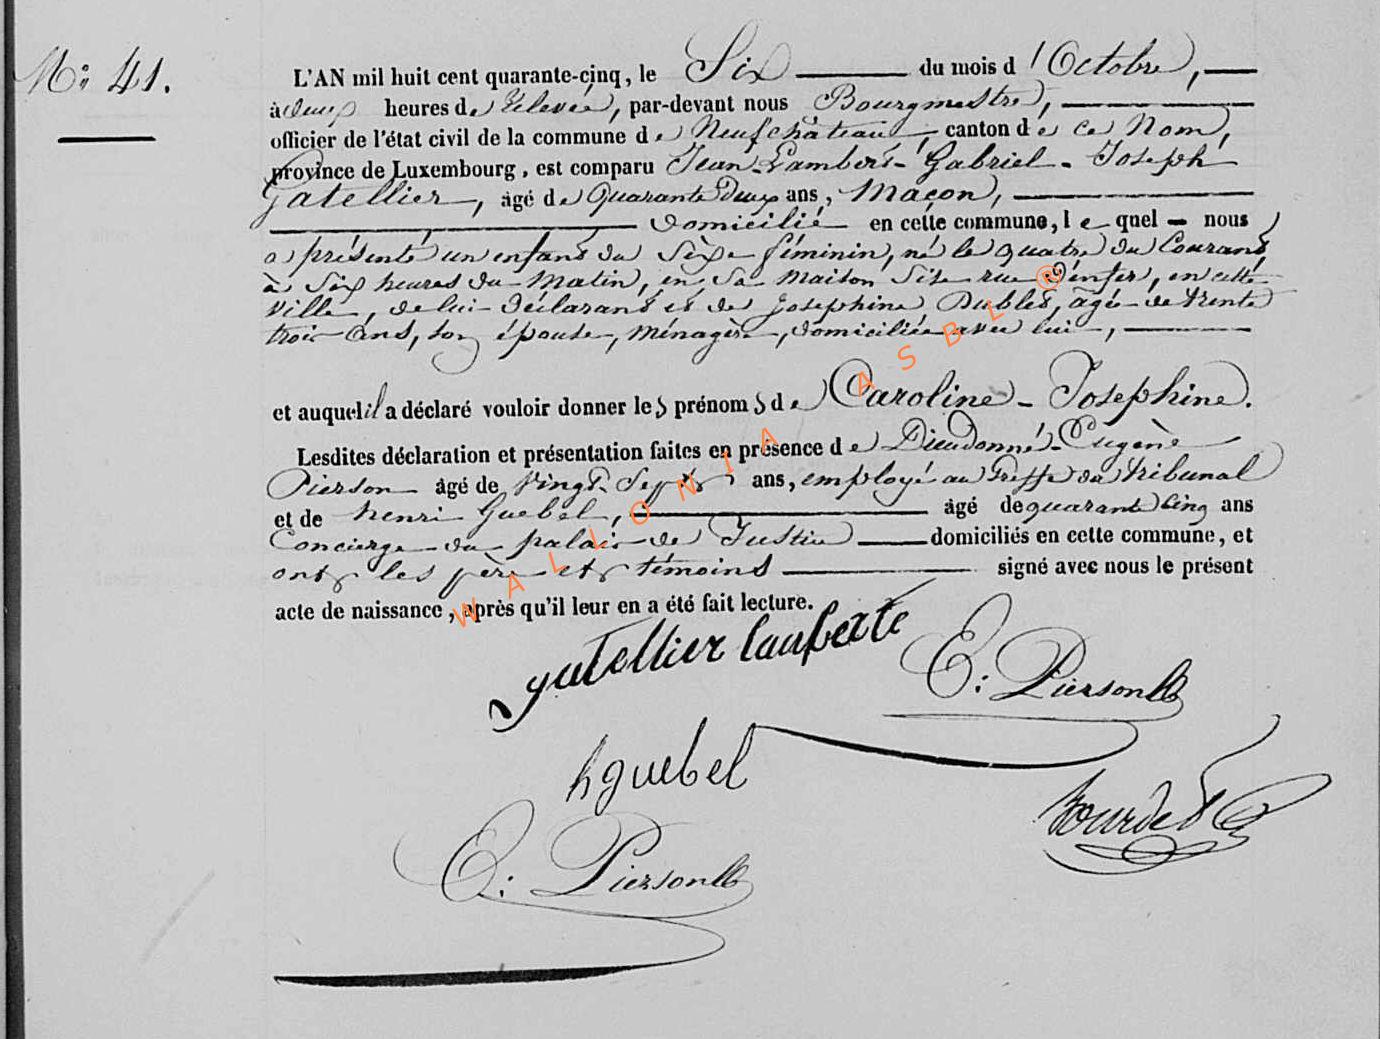 N° 41.
L'AN mil huit cent quarante-cinq, le Six du mois d'Octobre,
à deux heures de relevée, par-devant nous Bourgmestre,
officier de l'état civil de la commune de Neufchâteau, canton de ce Nom,
province de Luxembourg, est comparu Jean-Lambert-Gabriel-Joseph
Gatellier, âgé de Quarante Deux ans, Maçon,
Domicilié en cette commune, lequel nous
a présenté un enfant du Sèxe féminin, né le quatre du Courant,
à Six heures du Matin, en Sa Maison Sise rue d'enfer, en cette
Ville, de lui Déclarant et de Josephine Dublet, âgée de trente
trois Ans, son épouse, Ménagère, domiciliée avec lui,
et auquel il a déclaré vouloir donner les prénoms de Caroline-Josephine.
Lesdites déclaration et présentation faites en présence de Dieudonné-Eugène
Pierson âgé de Vingt-Sept ans, employé au Greffe du tribunal
et de henri Guebel, âgé de quarante Cinq ans
Concierge du palais de Justice domiciliés en cette commune, et
ont les père et témoins signé avec nous le présent
acte de naissance, après qu'il leur en a été fait lecture.
gatellier lanberte
E: Pierson
hguebel
E: Pierson
WALLONIA ASBL ®